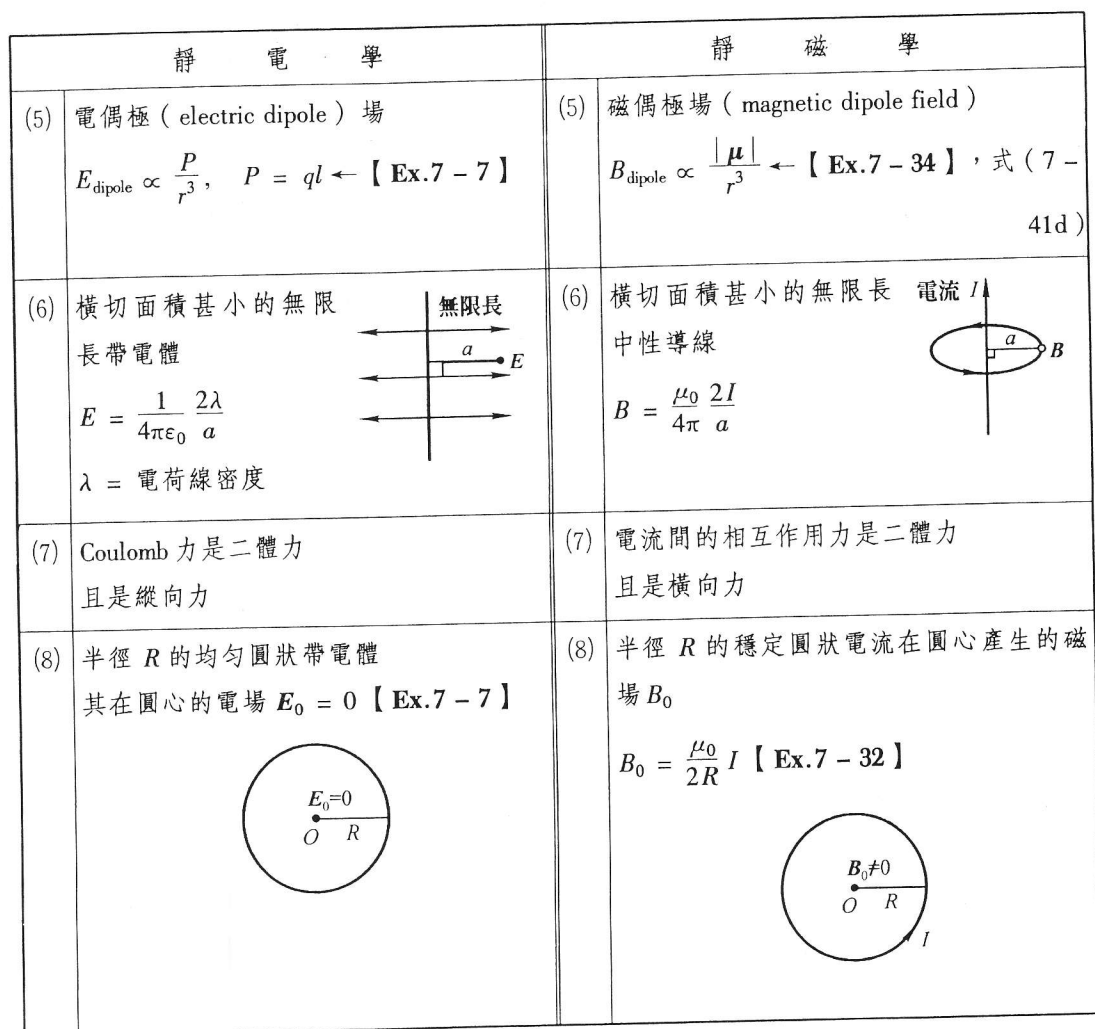 靜 電 學
靜 磁 學
(5) 電偶極 ( electric dipole ) 場
E_dipole ∝ P/r³, P = ql ← 【 Ex.7 – 7 】
(5) 磁偶極場 ( magnetic dipole field )
B_dipole ∝ |μ|/r³ ← 【 Ex.7 – 34 】,式 ( 7 –
41d )
(6) 橫切面積甚小的無限
長帶電體
E = 1/4πε₀ 2λ/a
λ = 電荷線密度
無限長
a
E
(6) 橫切面積甚小的無限長
中性導線
B = μ₀/4π 2I/a
電流 I
a
B
(7) Coulomb 力是二體力
且是縱向力
(7) 電流間的相互作用力是二體力
且是橫向力
(8) 半徑 R 的均勻圓狀帶電體
其在圓心的電場 E₀ = 0 【 Ex.7 – 7 】
E₀=0
O R
(8) 半徑 R 的穩定圓狀電流在圓心產生的磁
場 B₀
B₀ = μ₀/2R I 【 Ex.7 – 32 】
B₀≠0
O R
I